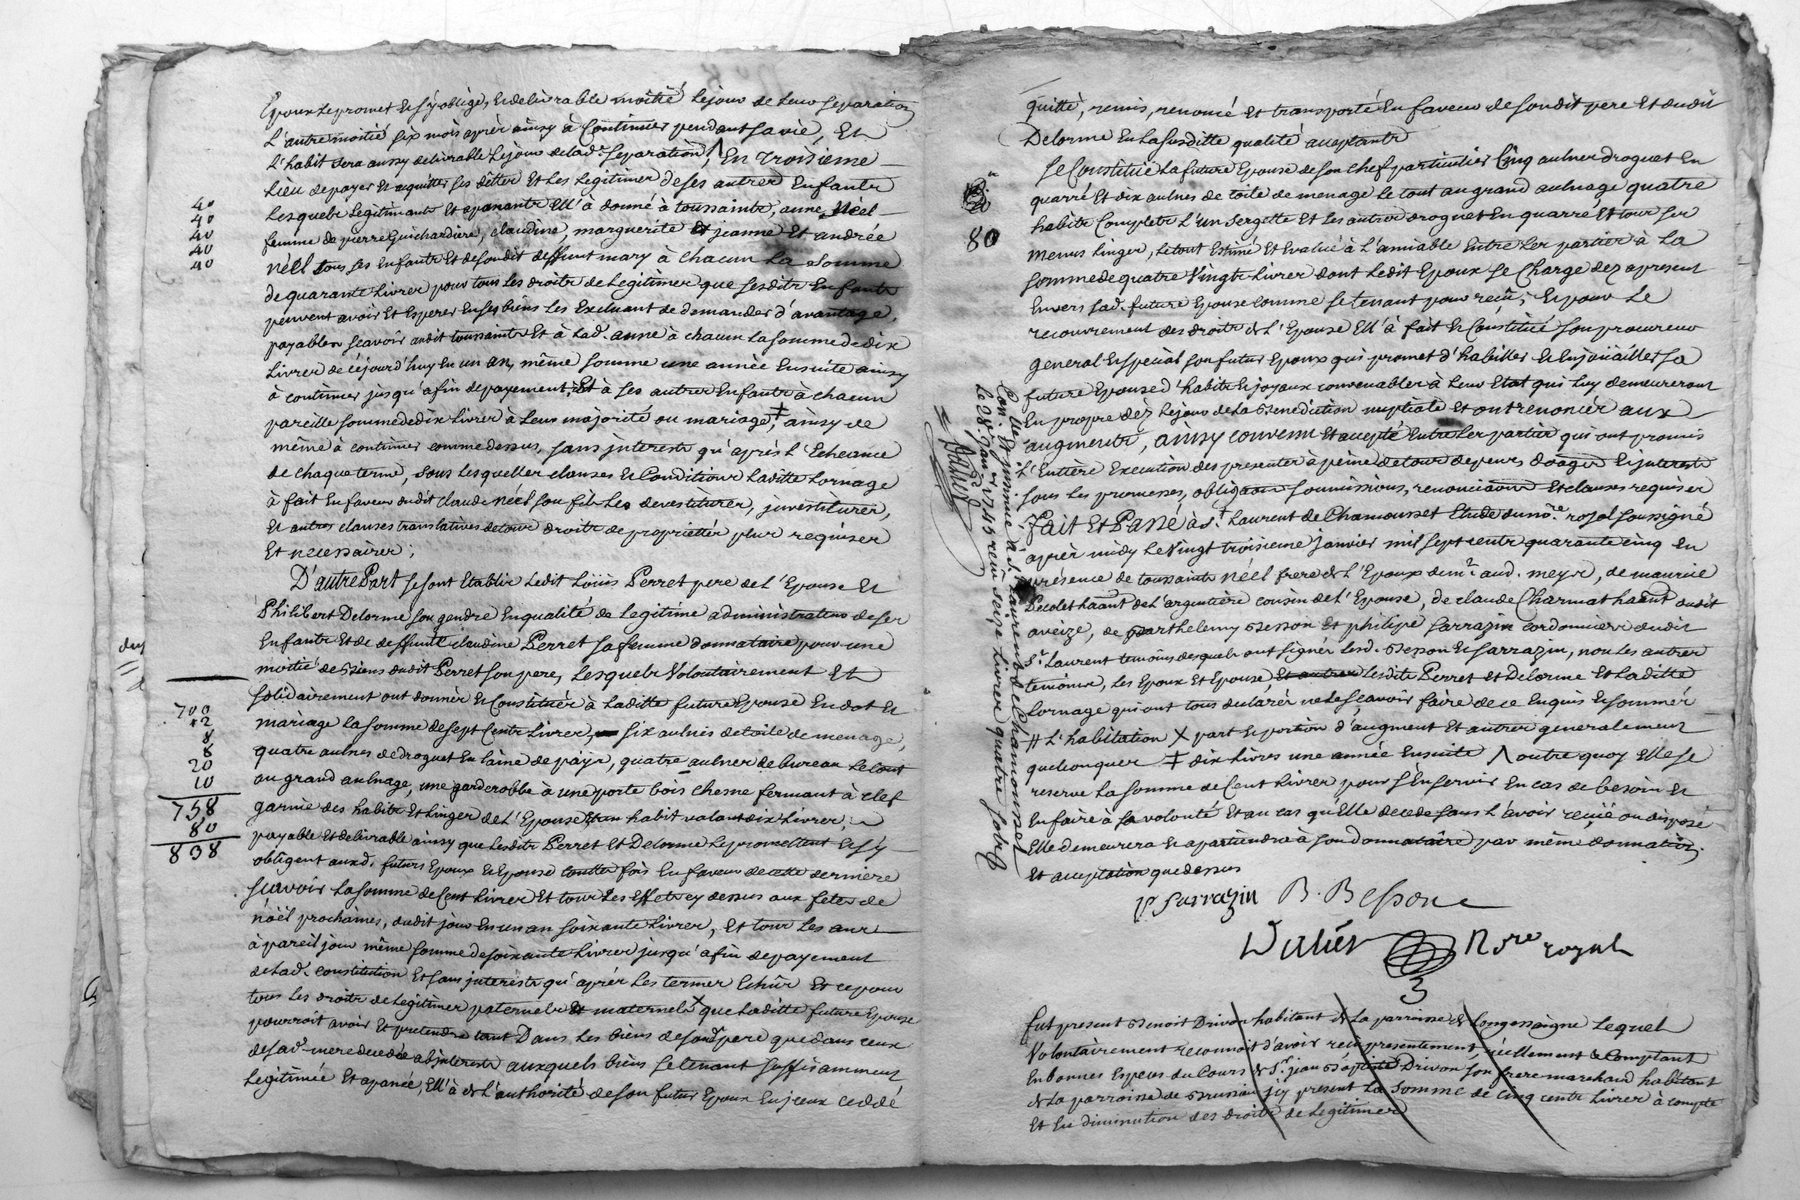 Epoux le promet et s'y oblige, et delivrable moitié le jour de leur separation
L'autre moitié six mois après ainsy à continuer pendant sa vie, Et
L'habit sera aussy delivrable le jour de lad. separation, /\ En troisieme
Lieu de payer et acquitter ses dettes Et les legitimes de ses autres Enfants
Lesquels legitimants et apanants Ell' à donné à toussaints, anne Néel
femme de pierre Guichardiere, claudine, marguerite et jeanne Et andrée
néel tous ses Enfants Et de soudit deffunt mary à chacun La somme
de quarante Livres pour tous les droits de legitimes que sesdits Enfants
peuvent avoir Et Esperer En ses biens les Excluant de demander d'avantage,
payables scavoir audit toussaints Et à Lad. anne à chacun la somme de dix
Livres de cejourd'huy En un an, même somme une année Ensuite ainsy
à continuer jusqu'à fin de payement, Et à ses autres Enfants à chacun
pareille somme de dix Livres à leur majorité ou mariage, ‡ ainsy de
même à continuer comme dessus, sans interests qu'après L'Echeance
de chaque terme, sous lesquelles clauses et Conditions Laditte Lornage
à fait En faveur dudit claude néel son fils Les devestitures, investitures,
Et autres clauses translatives de tous droits de proprietés plus requises
Et necessaires;
D'autre Part se sont Etablis Ledit Loüis Perret pere de L'Epouse Et
Philibert Delorme son gendre En qualité de Legitime administrateur de ses
Enfants Et de deffunte claudine Perret sa femme donnataire pour une
moitié des biens dudit Perret son pere, Lesquels Volontairement Et
solidairement ont donnés et Constitués à Laditte future Epouse En dot et
mariage La somme de sept Cents Livres, six aulnes de toile de menage,
quatre aulnes de droguet En laine de païs, quatre aulnes de bureau Le tout
au grand aulnage, une garderobbe à une porte bois chesne fermant à clef
garnie des habits Et Linges de L'Epouse, un habit valant dix Livres,
payable Et delivrable ainsy que Lesdits Perret Et Delorme Le promettent Et s'y
obligent auxd. futurs Epoux et Epouse touttes fois En faveur de cette derniere
scavoir La somme de Cent Livres Et tous Les Effets cy dessus aux fetes de
Nöël prochaines, dudit jour En un an soixante Livres, Et tous Les ans
à pareil jour même somme de soixante Livres jusqu'à fin de payement
de Lad. constitution Et sans interests qu'après Les termes Echûs Et ce pour
tous Les droits de Legitimes paternels Et maternels X que Laditte future Epouse
pourroit avoir Et pretendre tant Dans Les biens de sond. pere que dans ceux
de sad. mere decedée abintestat auxquels biens se tenant suffisamment
Legitimée Et apanée, Ell'à de L'authorité de son futur Epoux En jceux ceddé
40
40
40
40
40
700
12
8
8
20
10
758
80
838
quitté, remis, renoncé Et transporté En faveur de soudit pere Et dudit
Delorme En La susditte qualité acceptants
Se Constitue La future Epouse de son chef particulier Cinq aulnes droguet En
quarré Et dix aulnes de toile de menage Le tout au grand aulnage quatre
habits Complets L'un sergette Et les autres droguet En quarré Et tous ses
menus linges, Le tout Estimé Et Evalué à L'amiable Entre Les parties à La
somme de quatre Vingts Livres dont Ledit Epoux se Charge dez apresent
Envers sad. future Epouse comme se tenant pour reçû; Et pour Le
recouvrement des droits de L'Epouse Ell'à fait Et Constitué son procureur
general Et special son futur Epoux qui promet d'habiller Et Enjoüailler sa
future Epouse d'habits Et joyaux convenables à Leur Etat qui Luy demeureront
En propre dèz Le jour de La Benediction nuptiale Et ont renoncés aux
augments, ainsy convenu Et accepté Entre Les parties qui ont promis
L'Entière Execution des presentes à peine de tous depens domages Et interests
sous Les promesses, obligaons soumissions, renonciaons Et clauses requises
Fait Et Passé à St Laurent de Chamousset Etude du nore royal soussigné
après midy Le Vingt troisieme janvier mil sept cents quarante cinq En
présence de toussaints Néel frere de L'Epoux demt. aud. meys, de maurice
Pecolet haant de L'argentiere cousin de L'Epouse, de claude Charmat haant dudit
aveize, de Barthelemy Besson Et philipe Sarrazin cordonniers dudit
St Laurent temoins desquels ont signés Lesd. Besson Et Sarrazin, non Les autres
temoins, Les Epoux Et Epouse, Lesdits Perret Et Delorme Et Laditte
Lornage qui ont tous declarés ne le sçavoir faire de ce Enquis Et sommés
# L'habitation X part Et portion d'augment Et autres generalement
quelconques ‡ dix Livres une année Ensuite /\ outre quoy Elle se
reserve La somme de Cent Livres pour s'En servir En cas de besoin Et
En faire à sa volonté Et au cas qu'Elle decede sans L'avoir reçüe ou disposé
Elle demeurera Et apartiendra à son donnataire par même donnation
Et acceptation que dessus
80
P. Sarrazin B. Besson
Nore royal
Con.llé Et insinué à St Laurent de Chamousset
Le 28 janvier 1745 reçu seize Livres quatre sols
fut present Benoit Drivon habitant de La parroisse de Longessaigne Lequel
Volontairement reconnoit d'avoir reçu presentement réellement & Comptant
En bonnes Especes du Cours de Sr. jean Baptiste Drivon son frere marchand habitant
de La parroisse de Brussieu jcy present La somme de Cinq cents Livres à compte
Et En diminution des droits de Legitimes